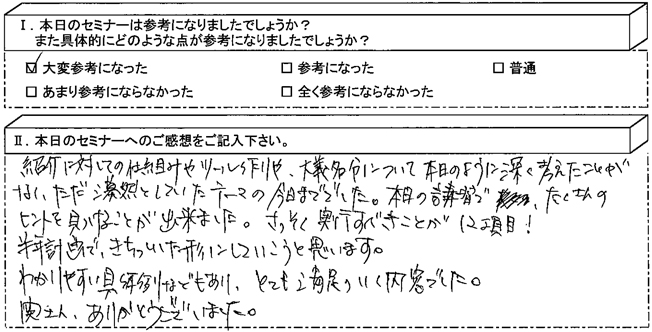 Ⅰ. 本日のセミナーは参考になりましたでしょうか?
また具体的にどのような点が参考になりましたでしょうか?
☑ 大変参考になった □ 参考になった □ 普通
□ あまり参考にならなかった □ 全く参考にならなかった
Ⅱ. 本日のセミナーへのご感想をご記入下さい。
紹介に対しての仕組みやツール作りや、大義名分について本日のように深く考えたことが
ない、ただ漠然としていたテーマの今日まででした。本日の講習で、たくさんの
ヒントを見つけることが出来ました。さっそく実行すべきことが12項目!
半年計画で、きちっといた形にしていこうと思います。
わかりやすい具体例などもあり、とても満足のいく内容でした。
ありがとうございました。